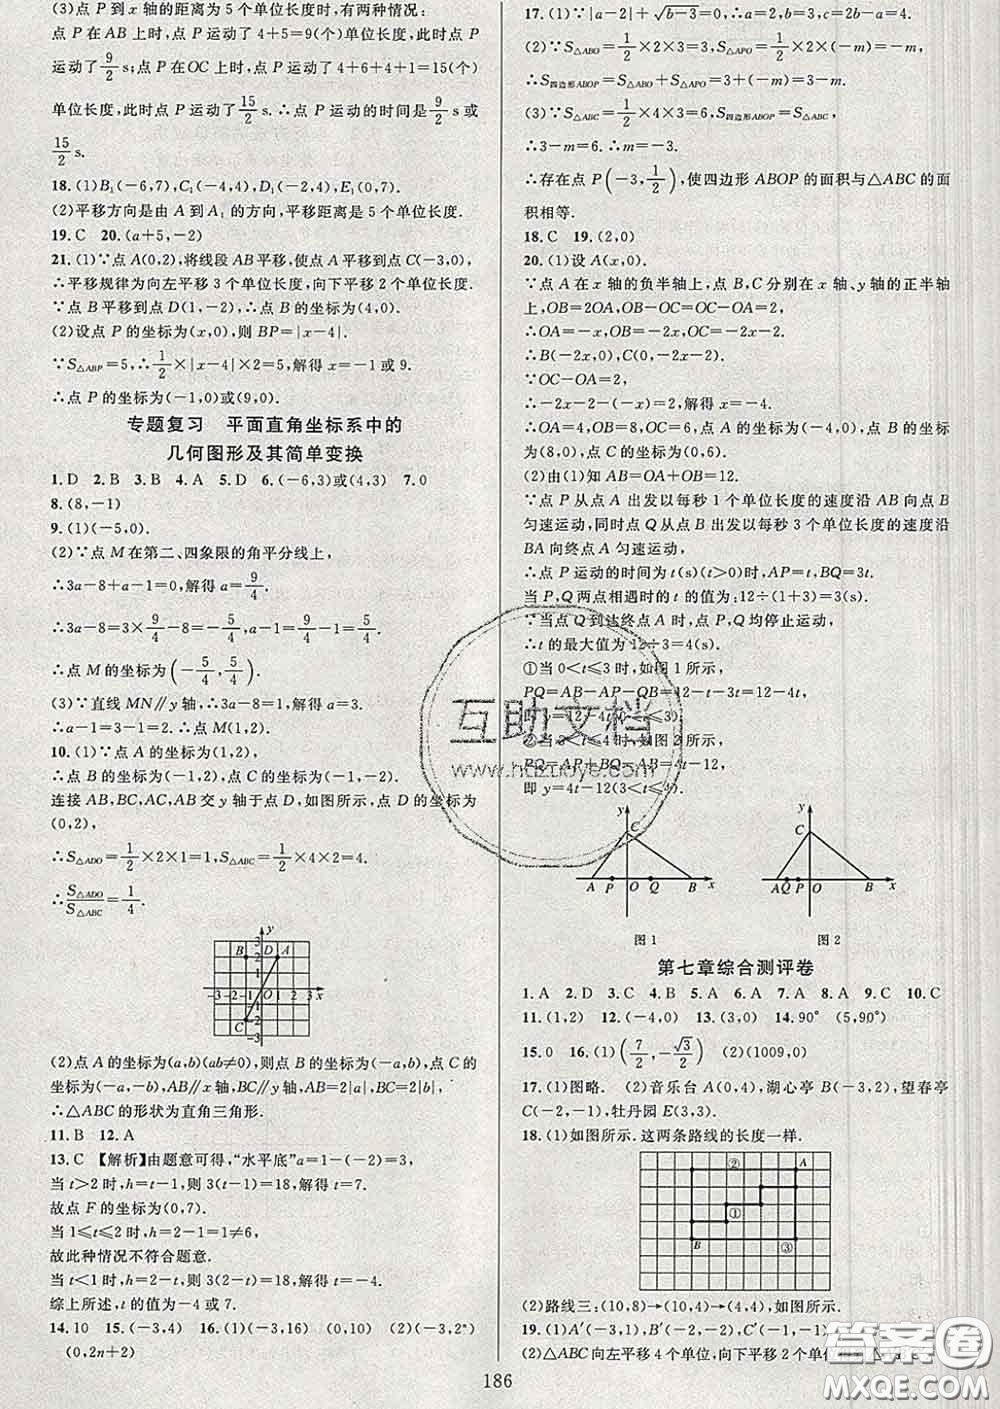 (3)点 P 到 x 轴的距离为 5 个单位长度时,有两种情况:
点 P 在 AB 上时,点 P 运动了 4+5=9(个)单位长度,此时点 P
运动了 9/2 s;点 P 在 OC 上时,点 P 运动了 4+6+4+1=15(个)
单位长度,此时点 P 运动了 15/2 s.∴点 P 运动的时间是 9/2 s 或
15/2 s.
18.(1)B₁(-6,7),C₁(-4,4),D₁(-2,4),E₁(0,7).
(2)平移方向是由 A 到 A₁ 的方向,平移距离是 5 个单位长度.
19.C 20.(a+5,-2)
21.(1)∵点 A(0,2),将线段 AB 平移,使点 A 平移到点 C(-3,0),
∴平移规律为向左平移 3 个单位长度,向下平移 2 个单位长度.
∵点 B 平移到点 D(1,-2),∴点 B(4,0).
(2)设点 P 的坐标为(x,0),则 BP=|x-4|.
∵S△ABP=5,∴1/2×|x-4|×2=5,解得 x=-1或9.
∴点 P 的坐标为(-1,0)或(9,0).
专题复习 平面直角坐标系中的
几何图形及其简单变换
1.D 2.B 3.B 4.A 5.D 6.(-6,3)或(4,3) 7.0
8.(8,-1)
9.(1)(-5,0).
(2)∵点 M 在第二、四象限的角平分线上,
∴3a-8+a-1=0,解得 a=9/4.
∴3a-8=3×9/4-8=-5/4,a-1=9/4-1=5/4.
∴点 M 的坐标为(-5/4,5/4).
(3)∵直线 MN∥y 轴,∴3a-8=1.∴a=3.
∴a-1=3-1=2.∴点 M(1,2).
10.(1)∵点 A 的坐标为(1,2),
∴点 B 的坐标为(-1,2),点 C 的坐标为(-1,-2).
连接 AB,BC,AC,AB 交 y 轴于点 D,如图所示,点 D 的坐标为
(0,2),
∴S△ADO=1/2×2×1=1,S△ABC=1/2×4×2=4.
∴S△ADO/S△ABC=1/4.
y
3
B D A
2
1
-3 -2 -1 O 1 2 3 x
-1
C -2
-3
(2)点 A 的坐标为(a,b)(ab≠0),则点 B 的坐标为(-a,b),点 C 的
坐标为(-a,-b),AB∥x 轴,BC∥y 轴,AB=2|a|,BC=2|b|,
∴△ABC 的形状为直角三角形.
11.B 12.A
13.C 【解析】由题意可得,“水平底”a=1-(-2)=3,
当 t>2 时,h=t-1,则 3(t-1)=18,解得 t=7.
故点 F 的坐标为(0,7).
当 1≤t≤2 时,h=2-1=1≠6,
故此种情况不符合题意.
当 t<1 时,h=2-t,则 3(2-t)=18,解得 t=-4.
综上所述,t 的值为-4 或 7.
14.10 15.(-3,4) 16.(1)(-3,16) (0,10) (2)(-3,2ⁿ)
(0,2n+2)
17.(1)∵|a-2|+√(b-3)=0,∴a=2,b=3,c=2b-a=4.
(2)∵S△ABO=1/2×2×3=3,S△APO=1/2×2×(-m)=-m,
∴S四边形ABOP=S△ABO+S△APO=3+(-m)=3-m.
(3)∵S△ABC=1/2×4×3=6,S四边形ABOP=S△ABC,
∴3-m=6.
∴存在点 P(-3,1/2),使四边形 ABOP 的面积与△ABC 的面
积相等.
18.C 19.(2,0)
20.(1)设 A(x,0).
∵点 A 在 x 轴的负半轴上,点 B,C 分别在 x 轴、y 轴的正半轴
上,OB=2OA,OB-OC=OC-OA=2,
∴OA=-x,OB=-2x,OC=-2x-2.
∴B(-2x,0),C(0,-2x-2).
∵OC-OA=2,
∴-2x-2-(-x)=2,解得 x=-4.
∴OA=4,OB=8,OC=6.
∴点 A 的坐标为(-4,0),点 C 的坐标为(0,6).
(2)由(1)知 AB=OA+OB=12.
∵点 P 从点 A 出发以每秒 1 个单位长度的速度沿 AB 向点 B
匀速运动,同时点 Q 从点 B 出发以每秒 3 个单位长度的速度沿
BA 向终点 A 匀速运动,
∴点 P 运动的时间为 t(s)(t>0)时,AP=t,BQ=3t.
当 P,Q 两点相遇时的 t 的值为:12÷(1+3)=3(s).
∵当点 Q 到达终点 A 时,点 P,Q 均停止运动,
∴t 的最大值为 12÷3=4(s).
①当 0<t≤3 时,如图 1 所示,
PQ=AB-AP-BQ=12-t-3t=12-4t,
即 y=12-4t(0<t≤3).
②当 3<t≤4 时,如图 2 所示,
PQ=AP+BQ-AB=t+3t-12=4t-12,
即 y=4t-12(3<t≤4).
y C A P O Q B x
图 1
y C A Q P O B x
图 2
第七章综合测评卷
1.A 2.D 3.C 4.B 5.C 6.A 7.A 8.A 9.C 10.C
11.(1,2) 12.(-4,0) 13.(3,0) 14.90° (5,90°)
15.0 16.(1)(7/2,-√3/2) (2)(1009,0)
17.(1)图略. (2)音乐台 A(0,4),湖心亭 B(-3,2),望春亭
C(-2,-1),牡丹园 E(3,3).
18.(1)如图所示.这两条路线的长度一样.
② A
①
B ③
(2)路线三:(10,8)→(10,4)→(4,4),如图所示.
19.(1)A′(-3,1),B′(-2,-2),C′(-1,-1).
(2)△ABC 向左平移 4 个单位,向下平移 2 个单位
186
互助文档
www.hdzuoye.com
答案圈
MXQE.COM